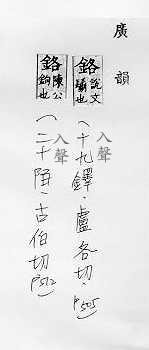 廣韻
鉻 說文 也
入聲
(十九鐸.盧各切.P505)
鉻 陳公鉤也
入聲
(二十陌.古伯切 P512)